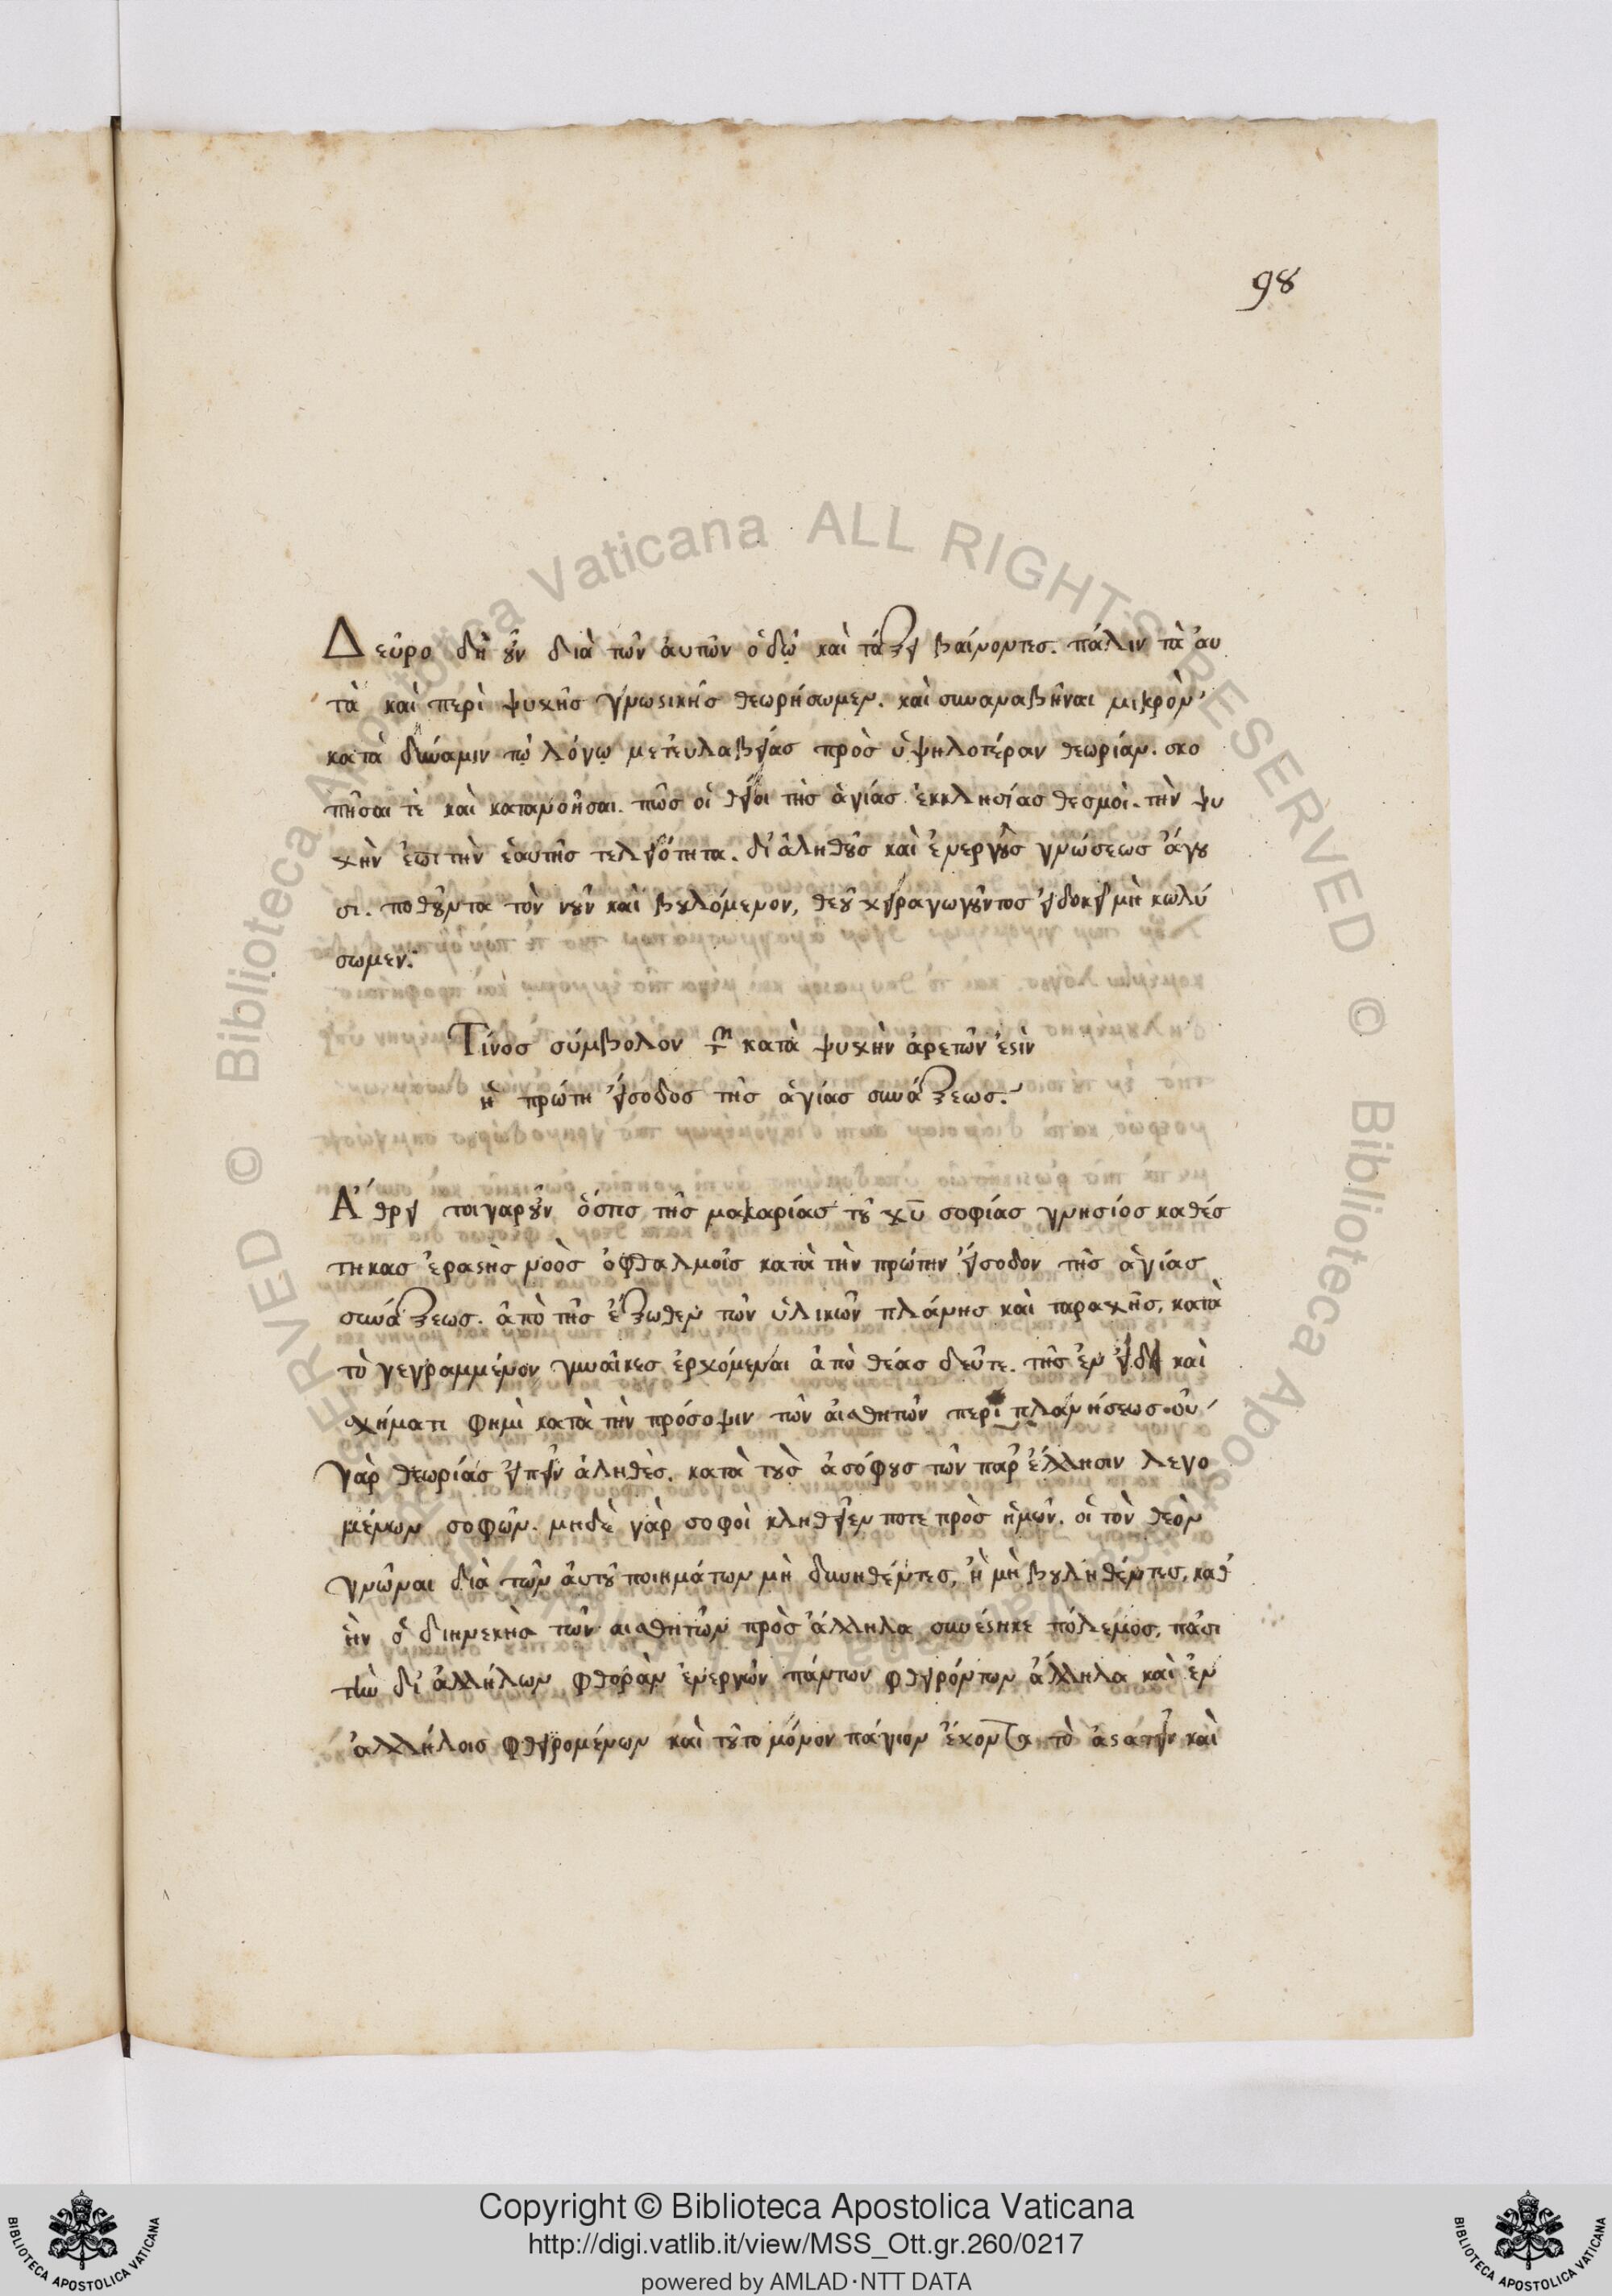 98
Δεῦρο δὴ οὖν διὰ τῶν ἀυτῶν ὁδῷ καὶ τάξει βαίνοντες. πάλιν τὰ ἀυ
τὰ καὶ περὶ ψυχῆς γνωστικῆς θεωρήσωμεν. καὶ συναναβῆναι μικρὸν
κατὰ δύναμιν τῷ λόγῳ μετ' ευλαβείας πρὸς ὑψηλοτέραν θεωρίαν. σκο
πῆσαι τὲ καὶ κατανοῆσαι. πῶς οἱ θεῖοι τῆς ἁγίας ἐκκλησίας θεσμοὶ. τὴν ψυ
χὴν ἐπι τὴν ἑαυτῆς τελειότητα. δι' ἀληθοῦς καὶ ἐνεργοῦς γνώσεως ἄγου
σι. ποθοῦντα τὸν νοῦν καὶ βουλόμενον, θεοῦ χειραγωγοῦντος εἰ δοκεῖ μὴ κωλύ
σωμεν:
Τίνος σύμβολον τῶν κατὰ ψυχὴν ἀρετῶν ἐστὶν
ἡ πρώτη εἴσοδος τῆς ἁγίας συνάξεως.
Ἄθρει τοιγαροῦν ὅστις τῆς μακαρίας τοῦ χυ σοφίας γνησίος καθέσ
τηκας ἐραστὴς νοὸς ὀφθαλμοῖς κατὰ τὴν πρώτην εἴσοδον τῆς ἁγίας
συνάξεως. ἀπὸ τῆς ἔξωθεν τῶν ὑλικῶν πλάνης καὶ ταραχῆς, κατὰ
τὸ γεγραμμένον γυναῖκες ἐρχόμεναι ἀπὸ θέας δεῦτε. τῆς ἐν εἴδει καὶ
σχήματι φημὶ κατὰ τὴν πρόσοψιν τῶν ἀισθητῶν περι πλανήσεως. οὐ
γὰρ θεωρίας εἰπεῖν ἀληθὲς. κατὰ τοὺς ἀσόφους τῶν παρ' ἕλλησιν λεγο
μένων σοφῶν. μηδὲ γὰρ σοφοὶ κληθεῖεν ποτε πρὸς ἡμῶν. οἱ τὸν θεὸν
γνῶναι διὰ τῶν ἀυτοῦ ποιημάτων μὴ δυνηθέντες, ἢ μὴ βουληθέντες, καθ'
ἣν ὁ διηνεκὴς τῶν αισθητῶν πρὸς ἄλληλα συνέστηκε πόλεμος, πᾶσι
τὴν δι' ἀλλήλων φθορὰν ἐνεργῶν πάντων φθειρόντων ἄλληλα καὶ ἐν
ἀλλήλοις φθειρομένων καὶ τοῦτο μόνον πάγιον ἔχοντα τὸ ἀστατεῖν καὶ
Copyright © Biblioteca Apostolica Vaticana
http://digi.vatlib.it/view/MSS_Ott.gr.260/0217
powered by AMLAD·NTT DATA